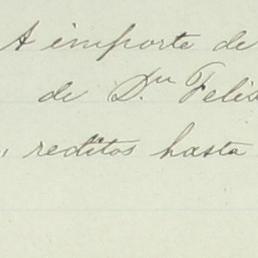 A importe de
de D.ⁿ Felix
reditos hasta